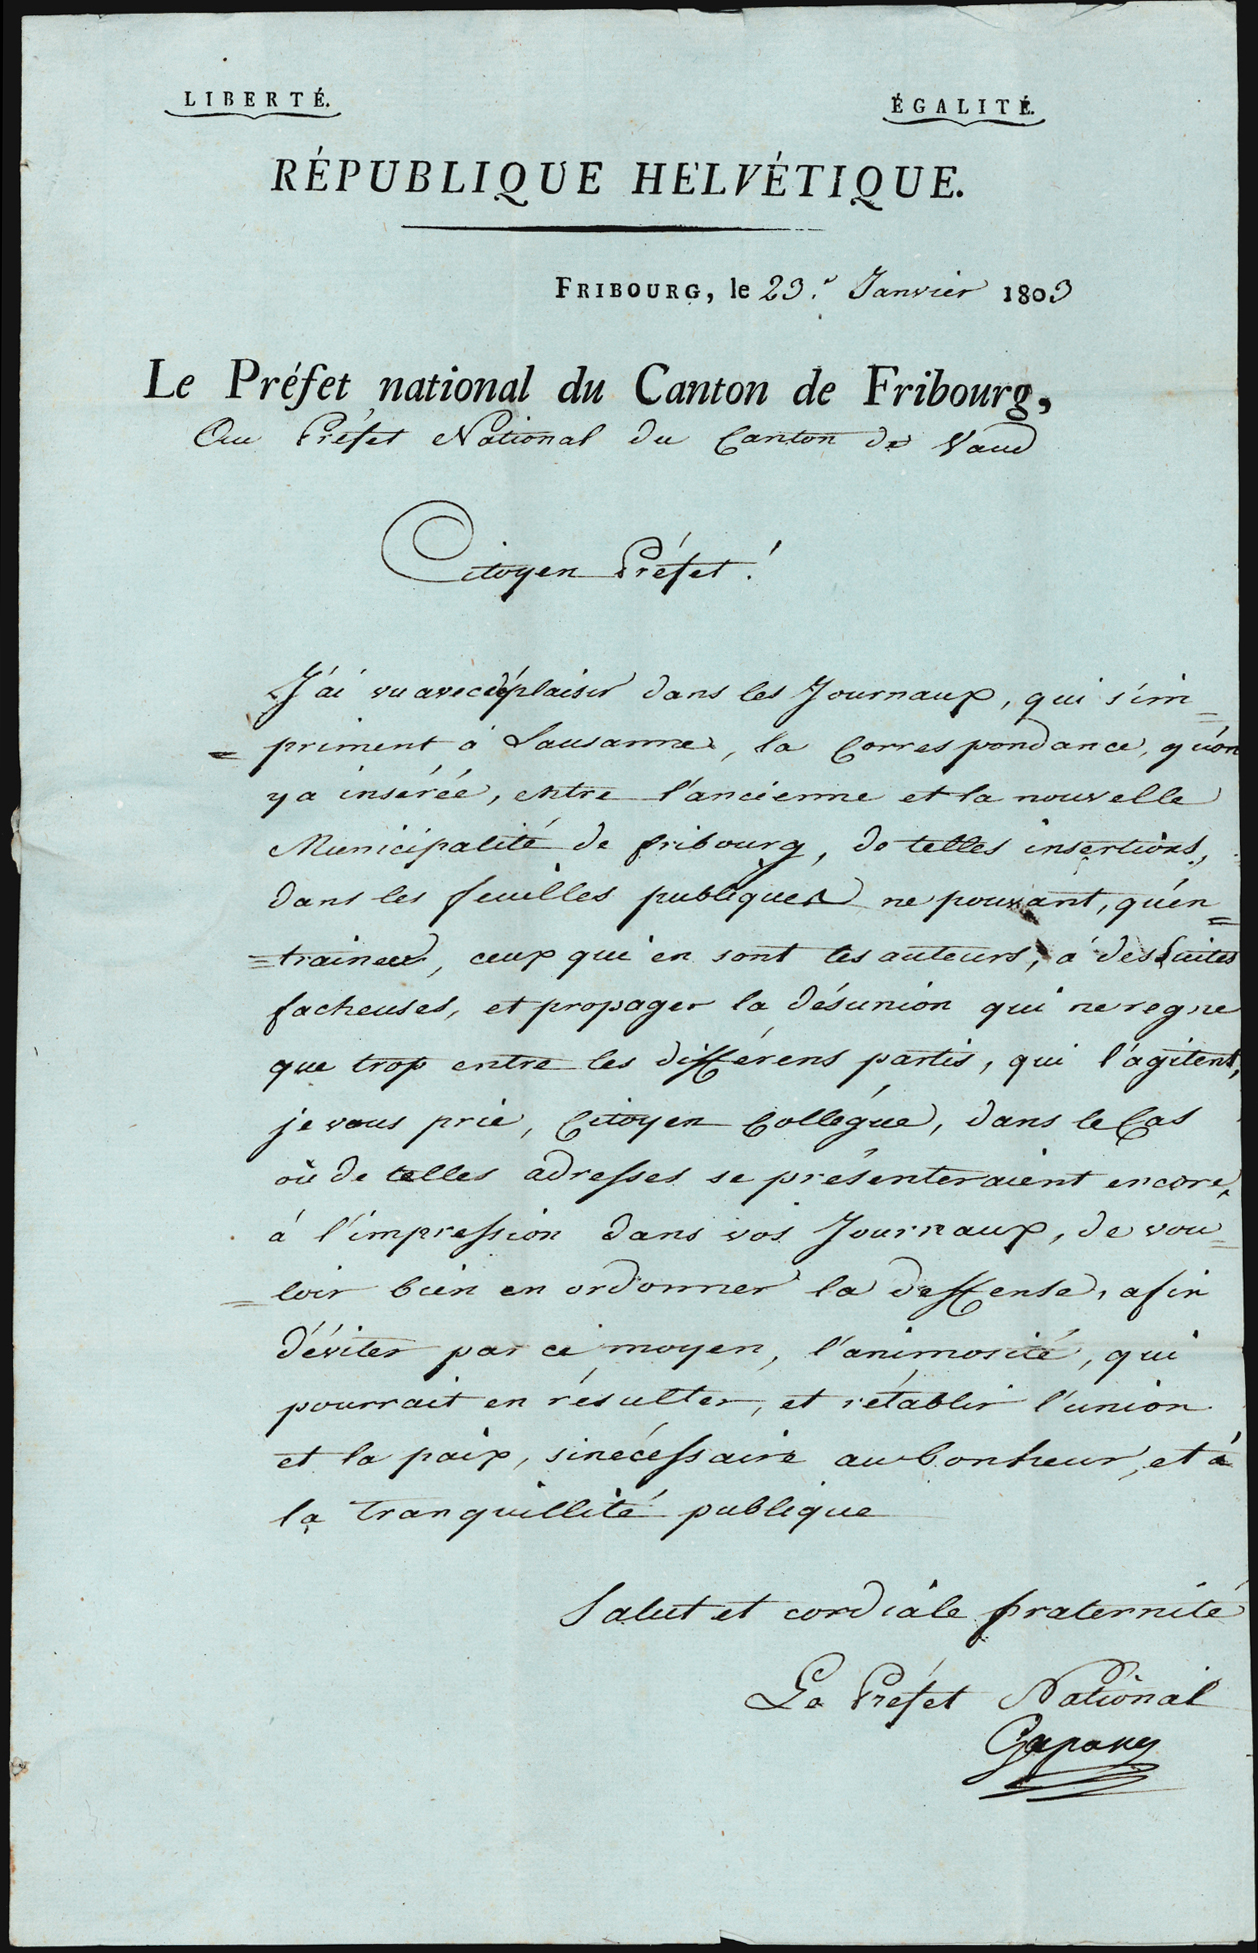 LIBERTÉ.
ÉGALITÉ.
RÉPUBLIQUE HELVÉTIQUE.
FRIBOURG, le 23.e Janvier 1803
Le Préfet national du Canton de Fribourg,
Au Préfet National du Canton de Vaud
Citoyen Préfet!
J'ai vu avec déplaisir dans les Journaux, qui s'im=
=priment à Lausanne, la Correspondance, qu'on
y a insérée, entre l'ancienne et la nouvelle
Municipalité de fribourg, de telles insertions,
dans les feuilles publiques ne pouvant, qu'en=
=trainer, ceux qui en sont les auteurs, à des suites
facheuses, et propager la désunion qui ne regne
que trop entre les différens partis, qui l'agitent,
je vous prie, Citoyen Collégue, dans le Cas
où de telles adresses se présenteraient encore,
à l'impression dans vos Journaux, de vou=
=loir bien en ordonner la deffense, afin
d'éviter par ce moyen, l'animosité, qui
pourrait en résulter, et rétablir l'union
et la paix, si nécessaire au bonheur, et à
la tranquillité publique
Salut et cordiale fraternité
Le Préfet National
Gapany